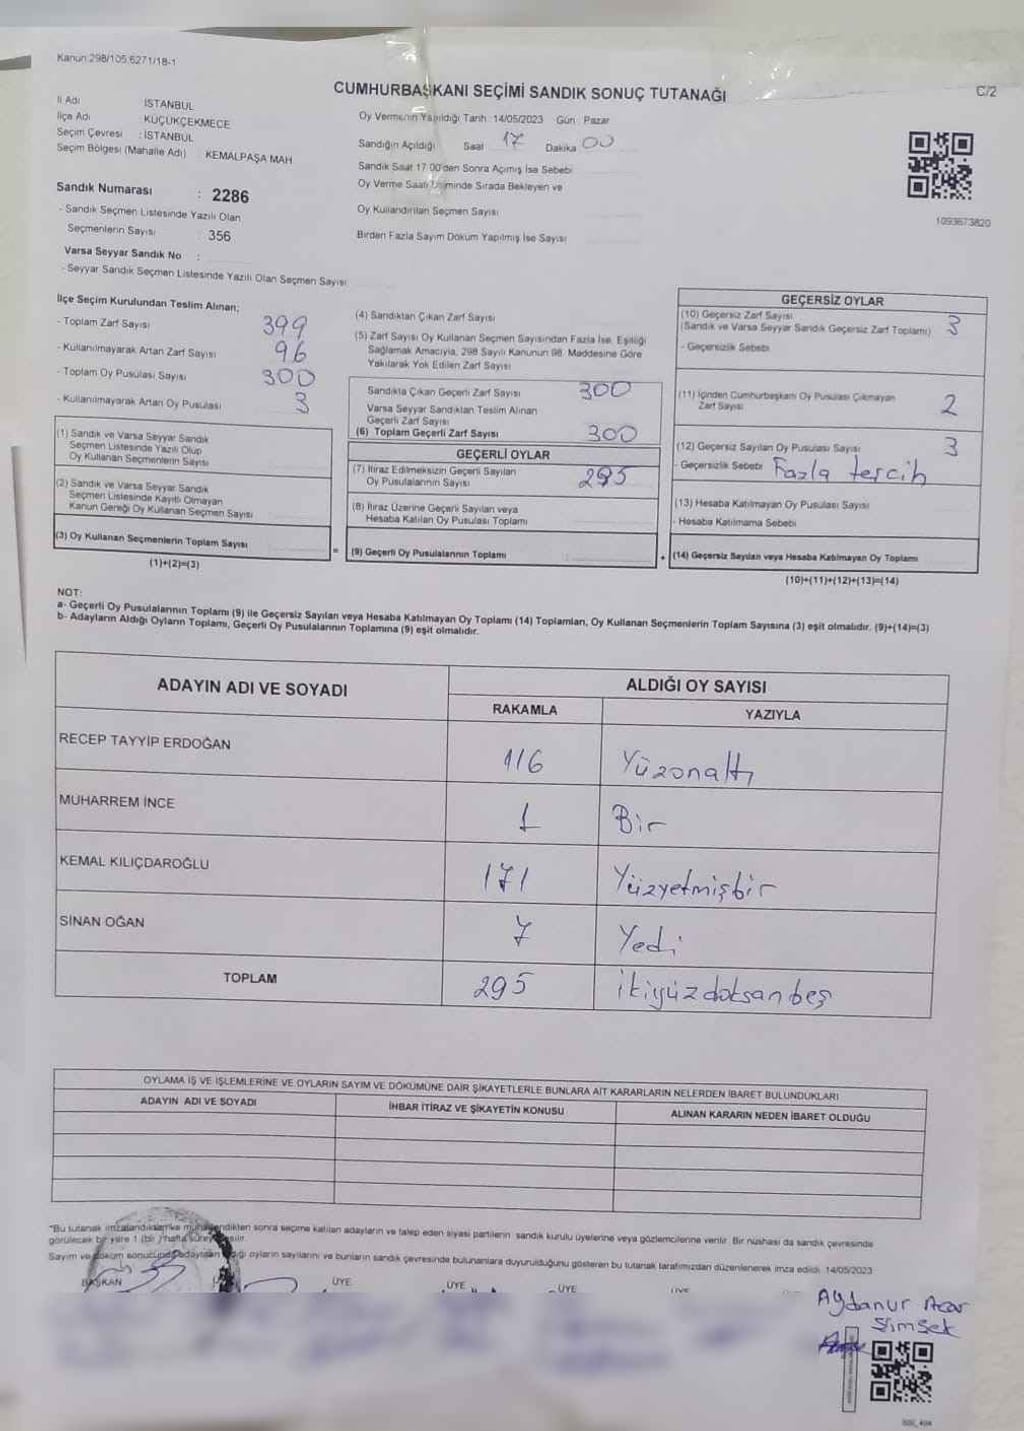 Kanun:298/105,6271/18-1
CUMHURBAŞKANI SEÇİMİ SANDIK SONUÇ TUTANAĞI
C/2
İl Adı İSTANBUL
İlçe Adı : KÜÇÜKÇEKMECE
Seçim Çevresi : İSTANBUL
Seçim Bölgesi (Mahalle Adı) KEMALPAŞA MAH
Oy Vermenin Yapıldığı Tarih: 14/05/2023 Gün: Pazar
Sandığın Açıldığı Saat 17 Dakika 00
Sandık Saat 17:00'den Sonra Açılmış İse Sebebi
Oy Verme Saati Bitiminde Sırada Bekleyen ve
Oy Kullandırılan Seçmen Sayısı
Birden Fazla Sayım Döküm Yapılmış İse Sayısı
1093673820
Sandık Numarası : 2286
- Sandık Seçmen Listesinde Yazılı Olan
Seçmenlerin Sayısı 356
Varsa Seyyar Sandık No :
- Seyyar Sandık Seçmen Listesinde Yazılı Olan Seçmen Sayısı
İlçe Seçim Kurulundan Teslim Alınan;
- Toplam Zarf Sayısı 399
- Kullanılmayarak Artan Zarf Sayısı 96
- Toplam Oy Pusulası Sayısı 300
- Kullanılmayarak Artan Oy Pusulası 3
(1) Sandık ve Varsa Seyyar Sandık
Seçmen Listesinde Yazılı Olup
Oy Kullanan Seçmenlerin Sayısı
(2) Sandık ve Varsa Seyyar Sandık
Seçmen Listesinde Kayıtlı Olmayan
Kanun Gereği Oy Kullanan Seçmen Sayısı
(3) Oy Kullanan Seçmenlerin Toplam Sayısı
(1)+(2)=(3)
(4) Sandıktan Çıkan Zarf Sayısı
(5) Zarf Sayısı Oy Kullanan Seçmen Sayısından Fazla İse, Eşitliği
Sağlamak Amacıyla, 298 Sayılı Kanunun 98. Maddesine Göre
Yakılarak Yok Edilen Zarf Sayısı
Sandıkta Çıkan Geçerli Zarf Sayısı 300
Varsa Seyyar Sandıktan Teslim Alınan
Geçerli Zarf Sayısı
(6) Toplam Geçerli Zarf Sayısı 300
GEÇERLİ OYLAR
(7) İtiraz Edilmeksizin Geçerli Sayılan
Oy Pusulalarının Sayısı 295
(8) İtiraz Üzerine Geçerli Sayılan veya
Hesaba Katılan Oy Pusulası Toplamı
= (9) Geçerli Oy Pusulalarının Toplamı
GEÇERSİZ OYLAR
(10) Geçersiz Zarf Sayısı
(Sandık ve Varsa Seyyar Sandık Geçersiz Zarf Toplamı) 3
- Geçersizlik Sebebi
(11) İçinden Cumhurbaşkanı Oy Pusulası Çıkmayan
Zarf Sayısı 2
(12) Geçersiz Sayılan Oy Pusulası Sayısı 3
- Geçersizlik Sebebi Fazla tercih
(13) Hesaba Katılmayan Oy Pusulası Sayısı
- Hesaba Katılmama Sebebi
+ (14) Geçersiz Sayılan veya Hesaba Katılmayan Oy Toplamı
(10)+(11)+(12)+(13)=(14)
NOT:
a- Geçerli Oy Pusulalarının Toplamı (9) ile Geçersiz Sayılan veya Hesaba Katılmayan Oy Toplamı (14) Toplamları, Oy Kullanan Seçmenlerin Toplam Sayısına (3) eşit olmalıdır. (9)+(14)=(3)
b- Adayların Aldığı Oyların Toplamı, Geçerli Oy Pusulalarının Toplamına (9) eşit olmalıdır.
ADAYIN ADI VE SOYADI
ALDIĞI OY SAYISI
RAKAMLA YAZIYLA
RECEP TAYYİP ERDOĞAN 116 Yüzonaltı
MUHARREM İNCE 1 Bir
KEMAL KILIÇDAROĞLU 171 Yüzyetmişbir
SİNAN OĞAN 7 Yedi
TOPLAM 295 ikiyüzdoksanbeş
OYLAMA İŞ VE İŞLEMLERİNE VE OYLARIN SAYIM VE DÖKÜMÜNE DAİR ŞİKAYETLERLE BUNLARA AİT KARARLARIN NELERDEN İBARET BULUNDUKLARI
ADAYIN ADI VE SOYADI İHBAR İTİRAZ VE ŞİKAYETİN KONUSU ALINAN KARARIN NEDEN İBARET OLDUĞU
"Bu tutanak imzalandıktan sonra seçime katılan adayların ve talep eden siyasi partilerin sandık kurulu üyelerine veya gözlemcilerine verilir. Bir nüshası da sandık çevresinde
görülecek bir yere 1 (bir) hafta süreyle asılır.
Sayım ve döküm sonucunda adayların aldığı oyların sayılarını ve bunların sandık çevresinde bulunanlara duyurulduğunu gösteren bu tutanak tarafımızdan düzenlenerek imza edildi. 14/05/2023
BAŞKAN ÜYE ÜYE ÜYE ÜYE
Aydanur Acar
Şimşek